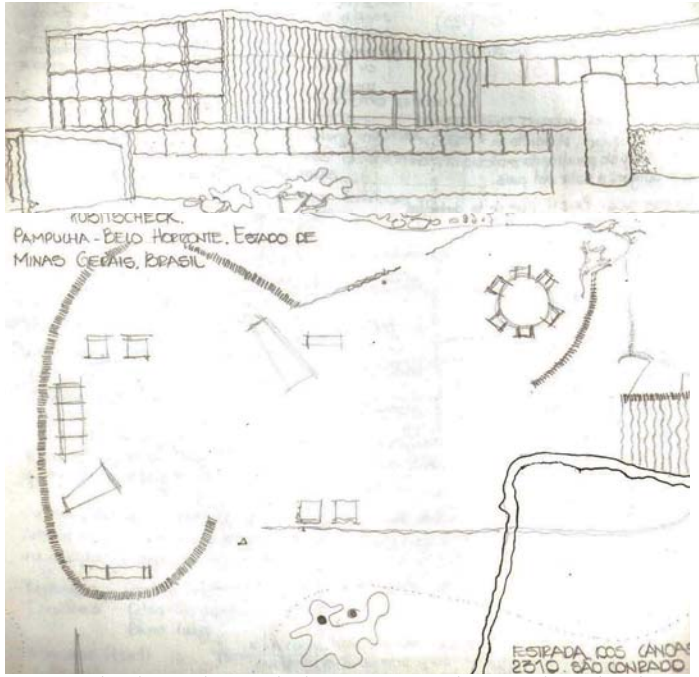 KUBITSCHECK.
PAMPULHA - BELO HORIZONTE. ESTADO DE
MINAS GERAIS, BRASIL
ESTRADA DOS CANOAS
2310. SÃO CONRADO